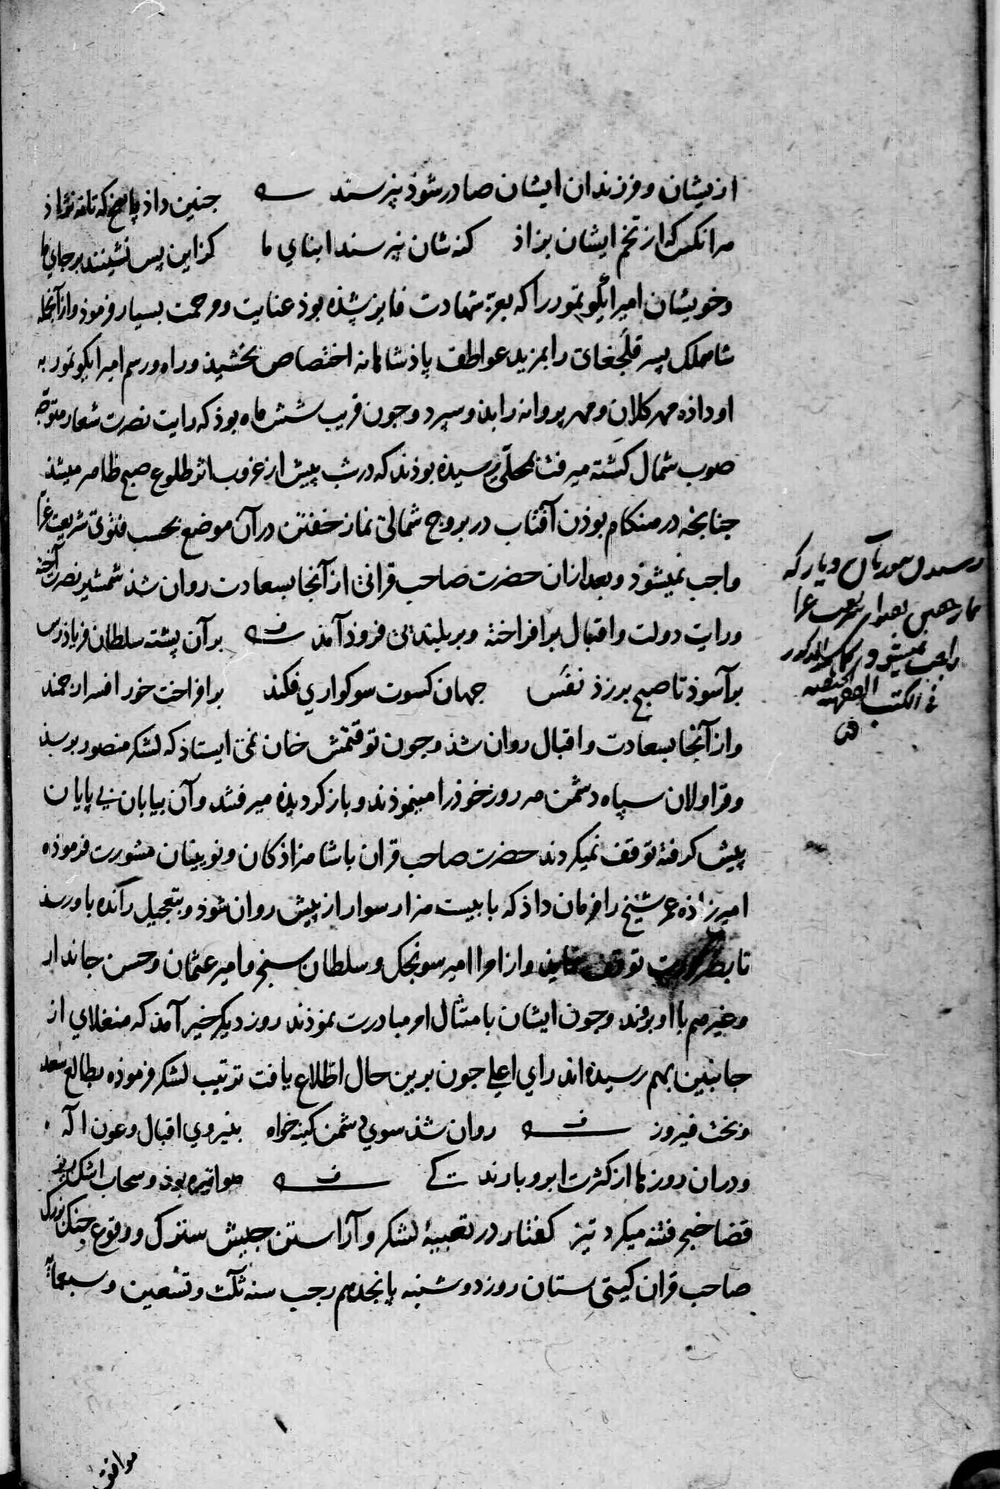 ازیشان و فرزندان ایشان صادر شوذ نپرسند جنین داذ پاسخ که تا نه نژاذ
هر انکس که از تخم ایشان بزاذ کنه شان نپرسند ابنای ما کزاین پس نشینند بر جای ما
و خویشان امیر ایکو تمور را که بعز شهادت فایز شذه بوذ عنایت و مرحمت بسیار فرموذ و از آنجمله
شاهملک پسر قلجغای را بمزید عواطف پاذشاهانه اختصاص بخشیذ و راه و رسم امیر ایکو تمور به
او داذه مهر کلان و مهر پروانه را بذو سپرد و جون قریب شش ماه بوذ که رایت نصرت شعار متوجه
صوب شمال کشته میرفت بمحلی رسیذه بوذند که در شب پیش از غروب اثر طلوع صبح ظاهر میشذ
جنانجه در هنکام بوذن آفتاب در بروج شمالی نماز خفتن در آن موضع بحسب فتوی شریعت غرا
واجب نمیشوذ و بعد ازان حضرت صاحب قرانی از آنجا بسعادت روان شذ شمشیر نصرت آخته
ورایت دولت و اقبال برافراخته و بر بلندیی فروذ آمذ بر آن پشته سلطان فریاذرس
بر آسوذ تا صبح برزذ نفس جهان کسوت سوکواری فکند برافراخت خور افسر ارجمند
و از آنجا بسعادت و اقبال روان شذ و جون توقتمش خان نمی ایستاذ که لشکر منصور برسذ
و قراولان سپاه دشمن هر روز خوذ را مینموذند و باز کردیذه میرفتند و آن بیابان بی پایان
پیش کرفته توقف نمیکردند حضرت صاحب قران با شاهزاذکان و نویینان مشورت فرموذه
امیرزاذه عمر شیخ را فرمان داذ که با بیست هزار سوار از پیش روان شوذ و بتعجیل رانده باو رسذ
تا بضرورت توقف نمایذ و از امرا امیر سونجک و سلطان سنجر و امیر عثمان و حسن جاندار
و غیرهم با او برفتند و جون ایشان بامتثال امر مبادرت نموذند روز دیکر خبر آمذ که منغلای از
جانبین بهم رسیذه اند رای اعلی جون برین حال اطلاع یافت ترتیب لشکر فرموذه بطالع سعد
و بخت فیروز روان شذ سوی دشمن کینه خواه بنیروی اقبال و عون اله
و دران روزها از کثرت ابر و بارندکی هوا تیره بوذ و سحاب اشک ریز
قضا خنجر فتنه میکرد تیز کفتار در تعبیهٔ لشکر و آراستن جیش سترک و وقوع جنک بزرک
صاحب قران کیتی ستان روز دوشنبه پانجدهم رجب سنه ثلث و تسعین و سبعمائه
رسیدن بدیاری که
نماز خفتن شریعت غرا
واجب نمیشود
فی الکتب الفقهیه
موافق